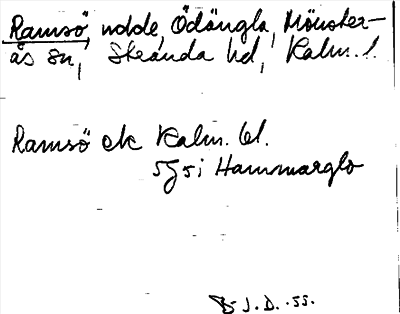 Ramsö, udde, Ödängla, Mönster-
ås sn, Stranda hd, Kalm. l.
Ramsö ek Kalm. bl.
5g5i Hammarglo
J. D. 55.